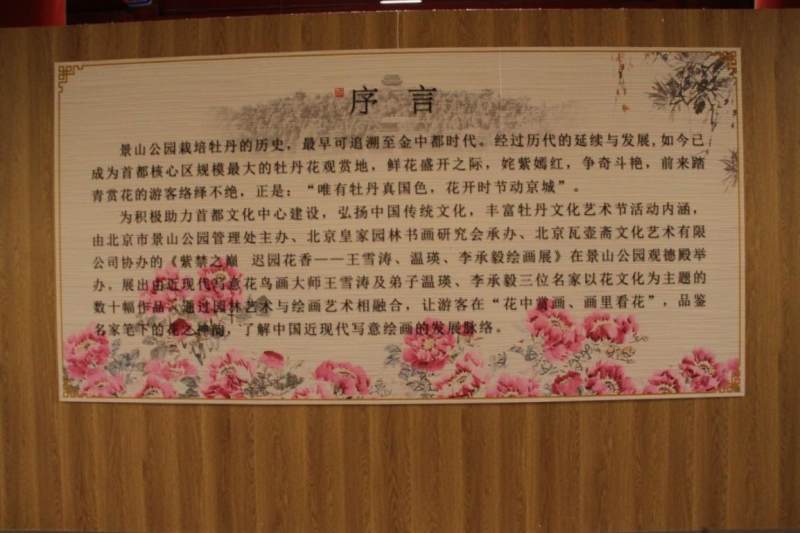 序言
景山公园栽培牡丹的历史，最早可追溯至金中都时代。经过历代的延续与发展，如今已
成为首都核心区规模最大的牡丹花观赏地，鲜花盛开之际，姹紫嫣红，争奇斗艳，前来踏
青赏花的游客络绎不绝，正是：“唯有牡丹真国色，花开时节动京城”。
为积极助力首都文化中心建设，弘扬中国传统文化，丰富牡丹文化艺术节活动内涵，
由北京市景山公园管理处主办、北京皇家园林书画研究会承办、北京瓦壶斋文化艺术有限
公司协办的《紫禁之巅 迟园花香——王雪涛、温瑛、李承毅绘画展》在景山公园观德殿举
办。展出由近现代写意花鸟画大师王雪涛及弟子温瑛、李承毅三位名家以花文化为主题的
数十幅作品，通过园林艺术与绘画艺术相融合，让游客在“花中赏画、画里看花”，品鉴
名家笔下的花之神韵，了解中国近现代写意绘画的发展脉络。